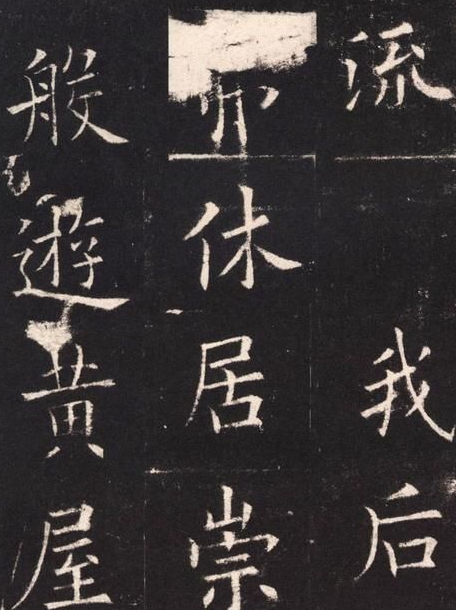 流 我后
弗休居崇
般遊黄屋